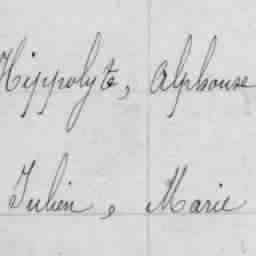 Hippolyte, Alphonse
Julien, Marie